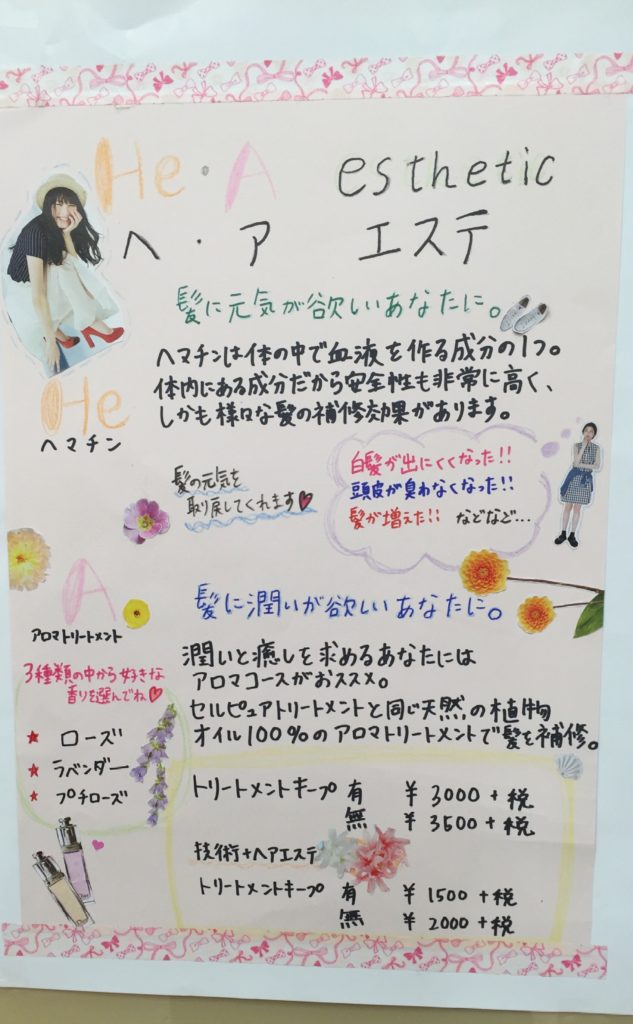 He・A esthetic
ヘ・ア エステ
髪に元気が欲しいあなたに。
ヘマチンは体の中で血液を作る成分の1つ。
体内にある成分だから安全性も非常に高く、
しかも様々な髪の補修効果があります。
He
ヘマチン
髪の元気を
取り戻してくれます♥
白髪が出にくくなった!!
頭皮が臭わなくなった!!
髪が増えた!! などなど…
A
アロマトリートメント
髪に潤いが欲しいあなたに。
3種類の中から好きな
香りを選んでね♥
★ ローズ
★ ラベンダー
★ プチローズ
潤いと癒しを求めるあなたには
アロマコースがおススメ。
セルピュアトリートメントと同じ天然の植物
オイル100%のアロマトリートメントで髪を補修。
トリートメントキープ 有 ¥3000+税
無 ¥3500+税
技術+ヘアエステ
トリートメントキープ 有 ¥1500+税
無 ¥2000+税